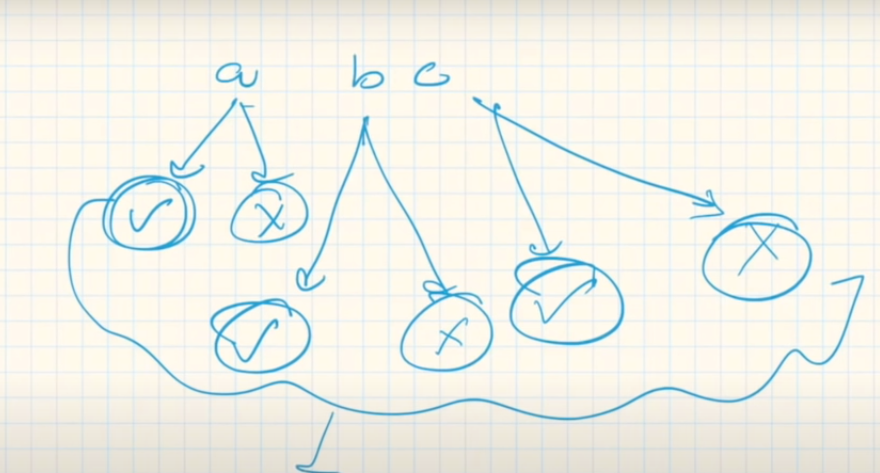 a b c
✓ x
x
✓ x ✓